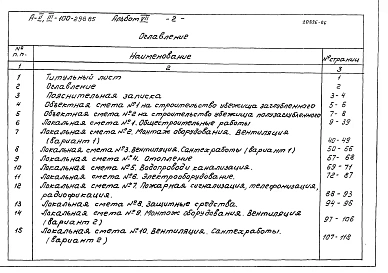 А-II, III-100-298.85 Альбом VII - 2 -
20836-06
Оглавление
№ п.п. Наименование № страниц
1 2 3
1 Титульный лист 1
2 Оглавление 2
3 Пояснительная записка 3-4
4 Объектная смета №1 на строительство убежища заглубленного 5-6
5 Объектная смета №2 на строительство убежища полузаглубленного 7-8
6 Локальная смета №1. Общестроительные работы 9-39
7 Локальная смета №2. Монтаж оборудования. Вентиляция
(вариант 1) 40-49
8 Локальная смета №3. Вентиляция. Сантехработы (вариант 1) 50-56
9 Локальная смета №4. Отопление 57-68
10 Локальная смета №5. Водопровод и канализация. 69-71
11 Локальная смета №6. Электрооборудование. 72-87
12 Локальная смета №7. Пожарная сигнализация, телефонизация,
радиофикация. 88-93
13 Локальная смета №8. Защитные средства. 94-96
14 Локальная смета №9. Монтаж оборудования. Вентиляция
(вариант 2) 97-106
15 Локальная смета №10. Вентиляция. Сантехработы.
(вариант 2) 107-118